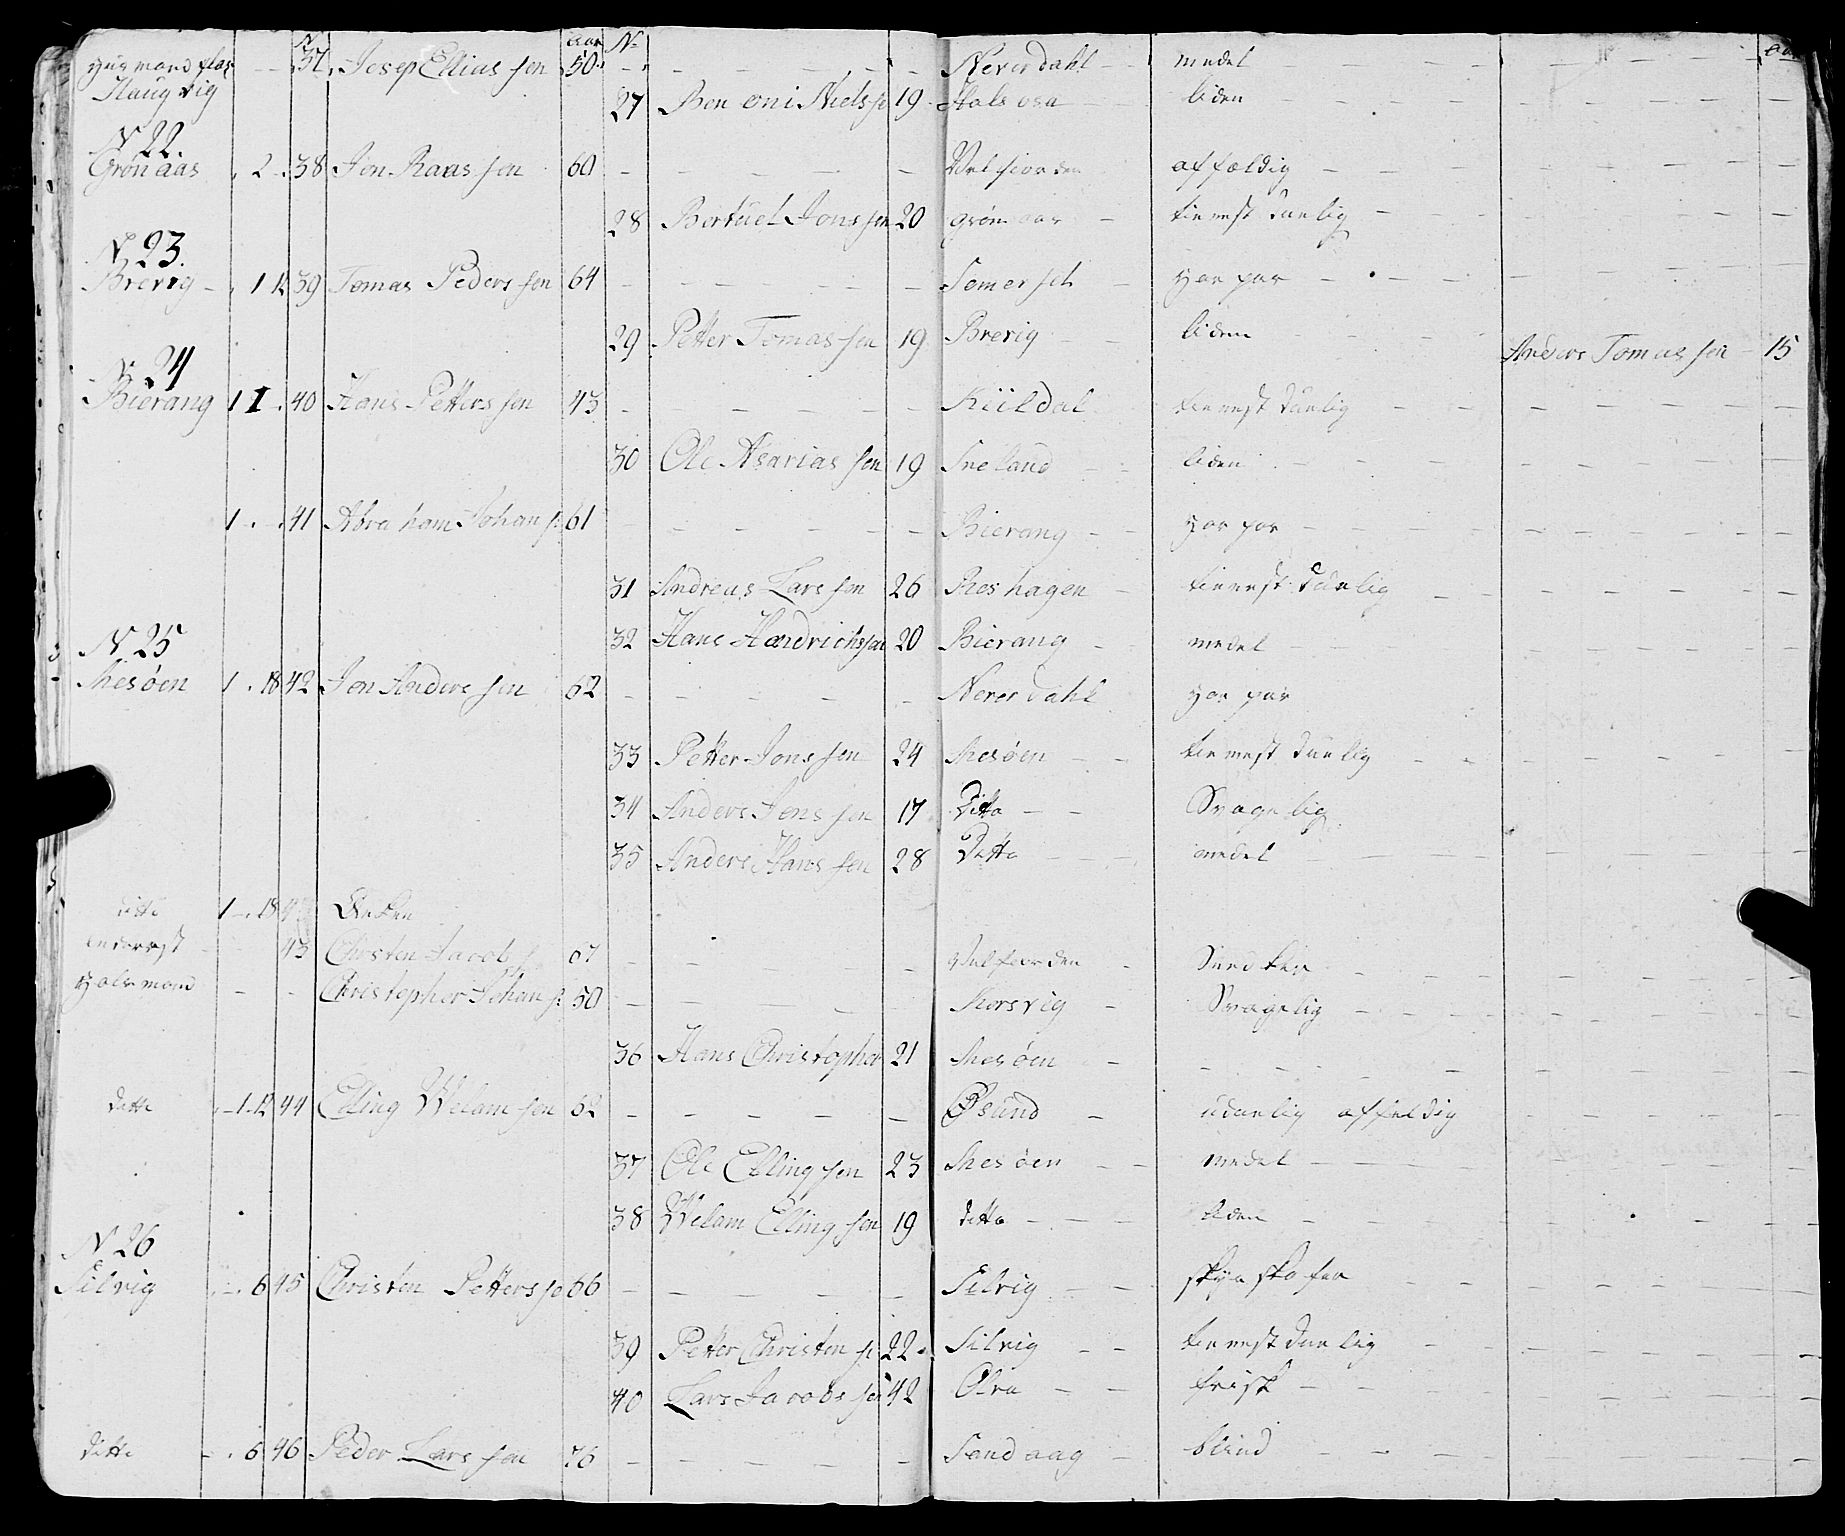 N Aar N Aar
Huusmand plas 37 Josep Ellias sen 50 Neverdahl medel
Haugvig
27 Ben oni Niels s 19 Halsosa liden
N 22.
Grönaas 2 38 Jon Raras sen 60 Velfiorden affældig
28 Bertuel Jons sen 20 Grönaas tienest dunlig
N 23.
Brevig 1 12 39 Tomas Peders sen 64 Somerset
29 Petter Tomas sen 19 Brevig liden
Anders Tomas sen 15
N 24
Bierang 1 1 40 Hans Petters sen 43 Kiildal tienest dunlig
30 Ole Asarias sen 19 Sneland liden
1 41 Abraham Johan s: 61 Bierang
31 Andreas Lars sen 26 hagen tienest dunlig
32 Hans Hændrichs sen 20 Bierang medel
N 25
Mesöen 1 18 42 Jon Anders sen 62 Neverdahl
33 Petter Jons sen 24 Mesöen tienest dunlig
34 Anders Jons sen 17 Ditto Svagelig
35 Anders Hans sen 28 Ditto medel
ditto 1 18 Enken
inderest 43 Christen Jacob s 67 Velfiorden
Christopher Johan s: 50 Korsvig Svagelig
36 Hans Christopher 21 Mesöen
ditto 1 12 44 Elling Welam sen 62 Øsund udunlig affeldig
37 Ole Elling sen 23 Mesöen medel
38 Welam Elling sen 19 ditto liden
N 26
Selvig 6 45 Christen Petters se 66 Selvig
39 Petter Christen s 22 Silvig tienest dunlig
40 Lars Jacobs sen 42 Olva frisk
ditto 6 46 Peder Lars sen 76 Sandaag blind